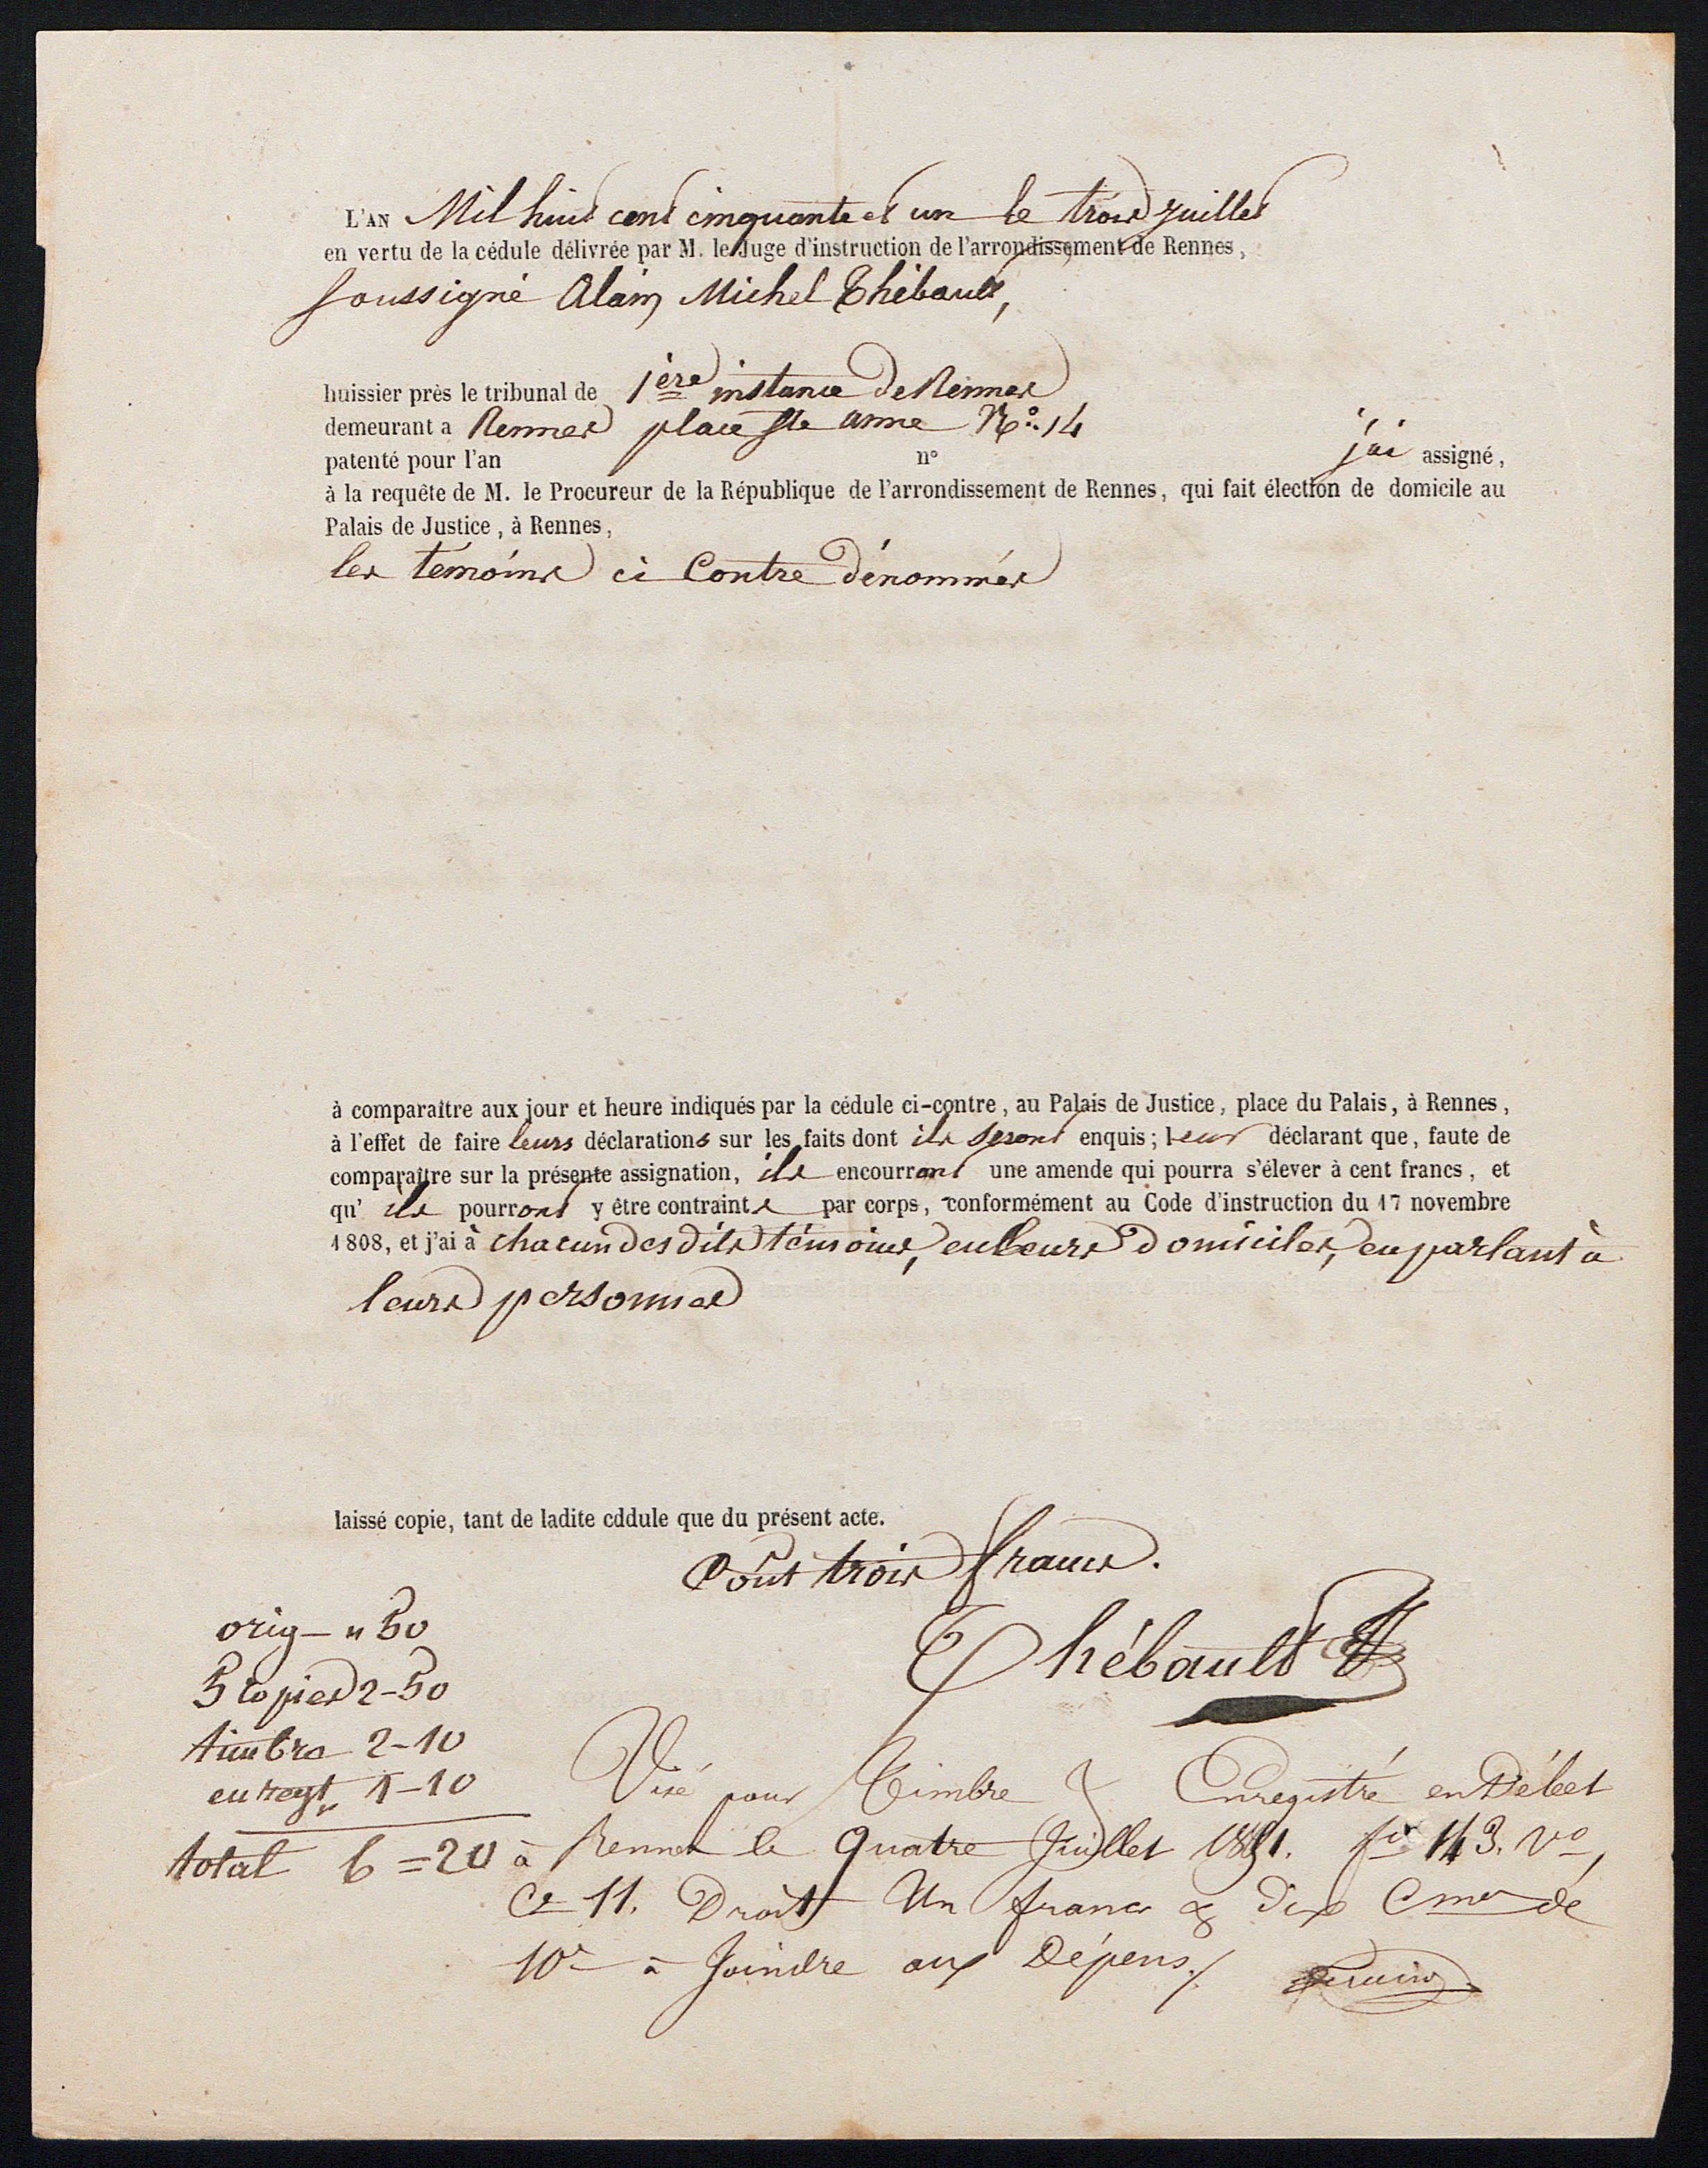 L'AN Mil huit cent cinquante et un le trois juillet
en vertu de la cédule délivrée par M. le Juge d'instruction de l'arrondissement de Rennes,
soussigné Alain Michel Thébault,
huissier près le tribunal de 1ère instance de Rennes
demeurant a Rennes place Ste anne No. 14
patenté pour l'an n° j'ai assigné,
à la requête de M. le Procureur de la République de l'arrondissement de Rennes, qui fait élection de domicile au
Palais de Justice, à Rennes,
les témoins ci Contre dénommés
à comparaître aux jour et heure indiqués par la cédule ci-contre, au Palais de Justice, place du Palais, à Rennes,
à l'effet de faire leurs déclarations sur les faits dont ils seront enquis; leur déclarant que, faute de
comparaître sur la présente assignation, ils encourront une amende qui pourra s'élever à cent francs, et
qu' ils pourront y être contraints par corps, conformément au Code d'instruction du 17 novembre
1808, et j'ai à chacun des dits témoins, en leurs domiciles, en parlant à
leurs personnes
laissé copie, tant de ladite cddule que du présent acte.
Coût trois francs.
Thébault
orig — " 50
5 copies 2-50
timbre 2-10
enregt. 1-10
total 6=20
Visé pour Timbre & Enregistré en Débet
à Rennes le quatre Juillet 1851. fo 143. Vo,
Ce 11. Droit Un franc & dix Cmes de
10e à Joindre aux Dépens./.